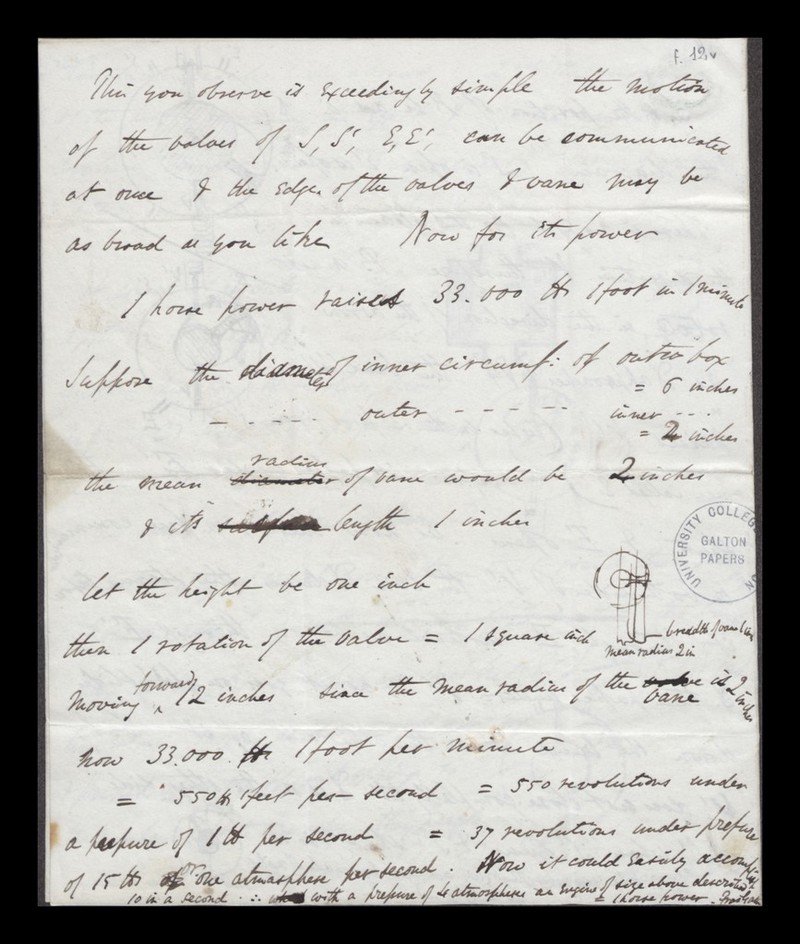 f. 12v
This you observe is exceedingly simple the motion
of the valves of S, S', E, E', can be communicated
at once & the edges of the valves & vane may be
as broad as you like Now for its power
1 horse power raises 33.000 lbs 1 foot in 1 minute
Suppose the diameter of inner circumf: of outer box
= 6 inches
- - - - - outer - - - - - inner - - -
= 2 inches
radius
the mean diameter of vane would be 2 inches
& its length 1 inches
let the height be one inch
then 1 rotation of the valve = 1 square inch
breadth of vane 1 in
mean radius 2 in
moving forward 12 inches since the mean radius of the valve vane is 2 inches
now 33.000 lbs 1 foot per minute
= 550 lbs 1 feet per second = 550 revolutions under
a pressure of 1 lb per second = 37 revolutions under pressure
of 15 lbs or one atmosphere per second. Now it could easily accomplish
10 in a second ∴ with a pressure of 4 atmospheres an engine of size above described
= 1 horse power.
UNIVERSITY COLLEGE
GALTON
PAPERS